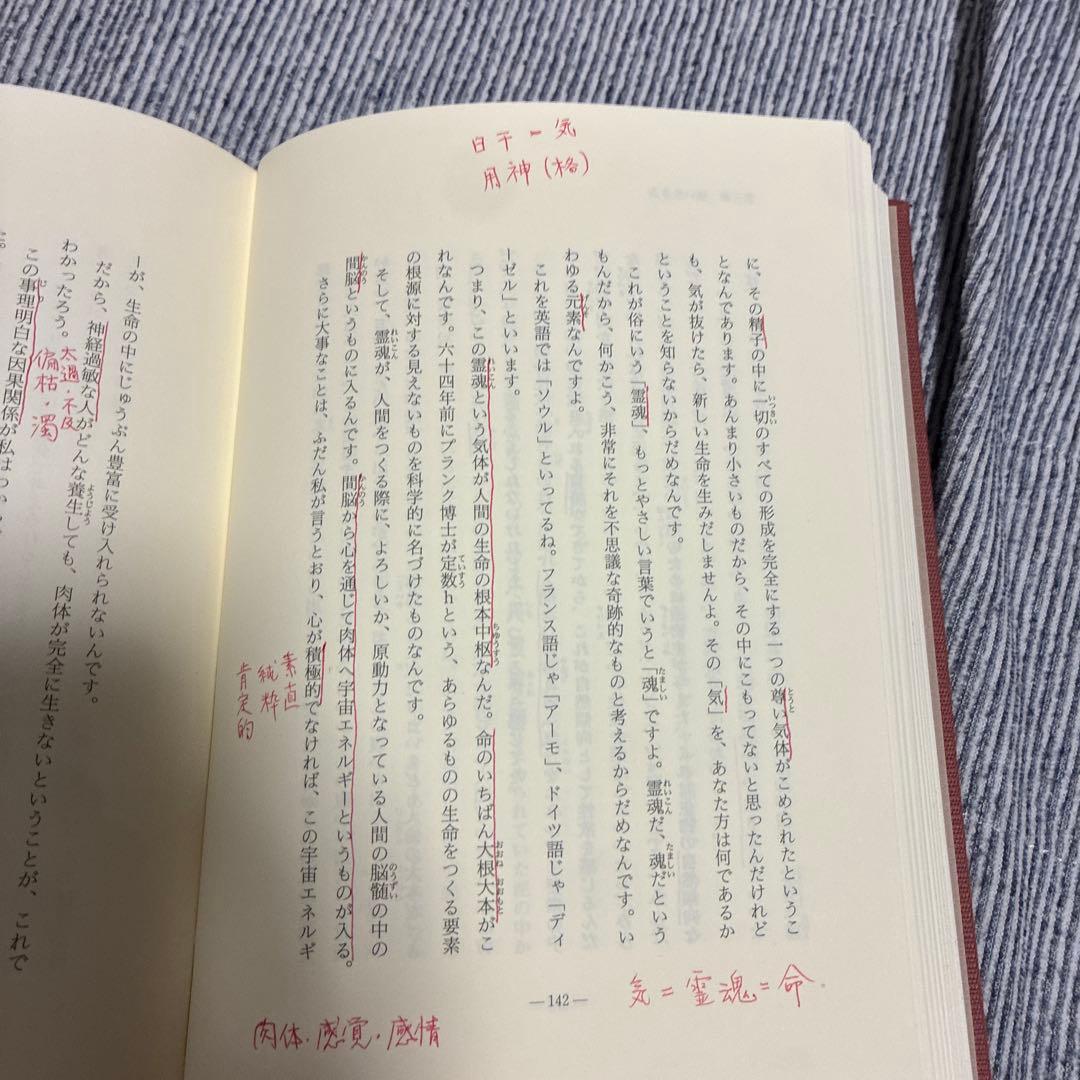 日干 ー 気
用神(格)
に、その精子の中に一切のすべての形成を完全にする一つの尊い気体がこめられたというこ
となんであります。あんまり小さいものだから、その中にこもってないと思ったんだけれど
も、気が抜けたら、新しい生命を生みだしませんよ。その「気」を、あなた方は何であるか
ということを知らないからだめなんです。
これが俗にいう「霊魂」、もっとやさしい言葉でいうと「魂」ですよ。霊魂だ、魂だという
もんだから、何かこう、非常にそれを不思議な奇跡的なものと考えるからだめなんです。い
わゆる元素なんですよ。
これを英語では「ソウル」といってるね。フランス語じゃ「アーモ」、ドイツ語じゃ「ディ
ーゼル」といいます。
つまり、この霊魂という気体が人間の生命の根本中枢なんだ。命のいちばん大根大本がこ
れなんです。六十四年前にプランク博士が定数hという、あらゆるものの生命をつくる要素
の根源に対する見えないものを科学的に名づけたものなんです。
そして、霊魂が、人間をつくる際に、よろしいか、原動力となっている人間の脳髄の中の
間脳というものに入るんです。間脳から心を通じて肉体へ宇宙エネルギーというものが入る。
さらに大事なことは、ふだん私が言うとおり、心が積極的でなければ、この宇宙エネルギ
素直
純粋
肯定的
気=霊魂=命.
―142―
肉体・感覚・感情
ーが、生命の中にじゅうぶん豊富に受け入れられないんです。
だから、神経過敏な人がどんな養生しても、肉体が完全に生きないということが、これで
わかったろう。
太過・不及
偏枯・濁
この事理明白な因果関係が私はつ